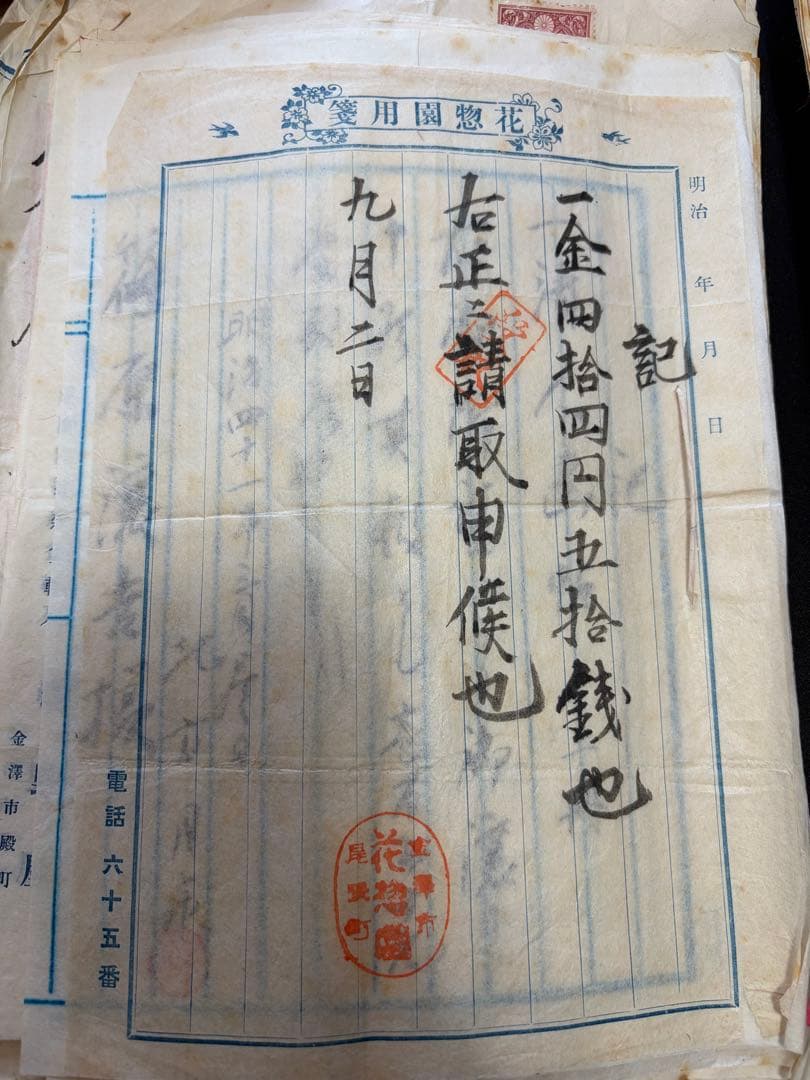 花惣園用箋
明治 年 月 日
記
一金四拾四円五拾銭也
右正ニ請取申候也
九月二日
金澤市
尾張町
花惣園
電話 六十五番
金澤市殿町